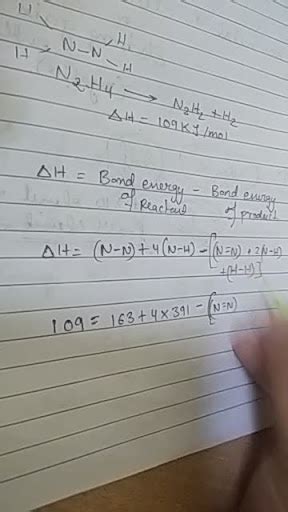 H H
N-N
H H
N2H4 → N2H2 + H2
ΔH = 109 KJ/mol
ΔH = Bond energy - Bond energy
of Reactant of product
ΔH = (N-N) + 4(N-H) - [(N=N) + 2(N-H)
+(H-H)]
109 = 163 + 4 × 391 - [(N=N)